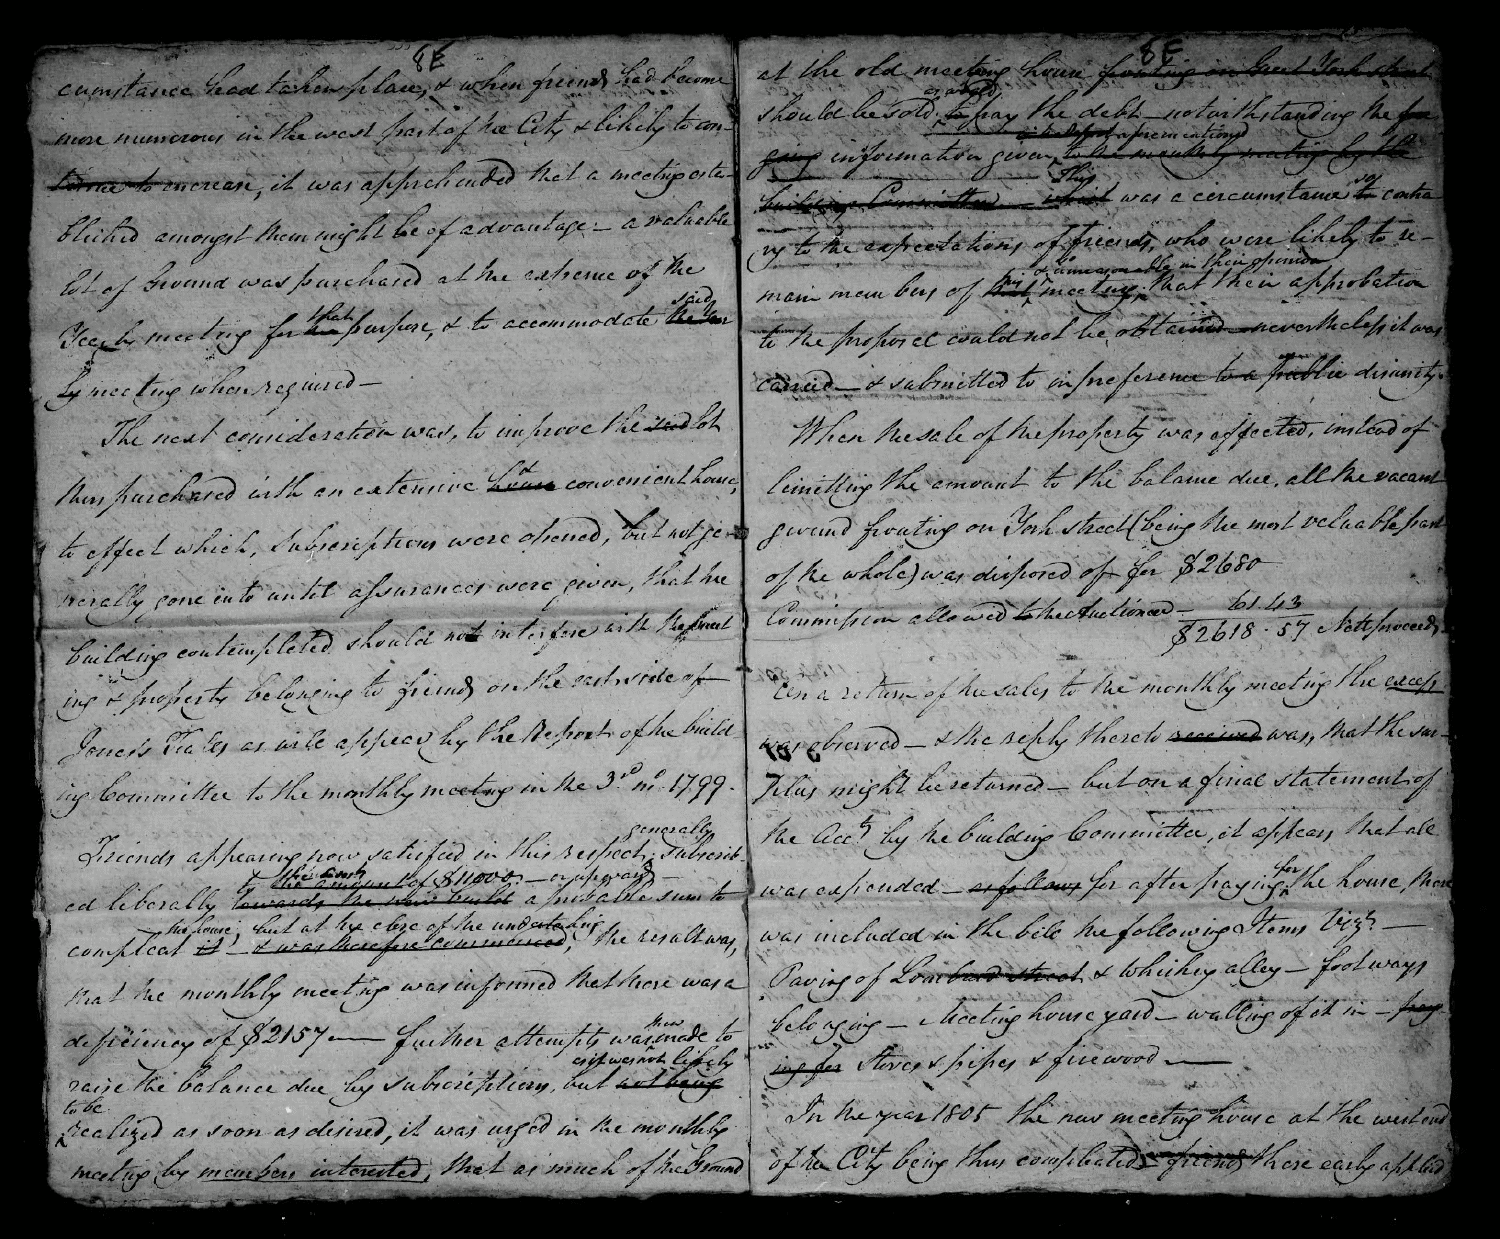 8E
cumstance had taken place, & when friends had become
more numerous in the west part of the City & likely to con-
tinue to encrease, it was apprehended that a meeting esta-
blished amongst them might be of advantage – a valuable
lot of Ground was purchased at the expence of the
Yearly meeting for the that purpose, & to accommodate the Year said
ly meeting when required –
The next consideration was, to improve the said lot
thus purchased with an extensive house & convenient house,
to effect which, Subscriptions were opened, but not ge-
nerally gone into until assurances were given, that the
building contemplated should not interfere with the meet
ing & property belonging to friends on the east side of
Jones's Falls as will appear by the Report of the build
ing Committee to the monthly meeting in the 3rd mo 1799.
Friends appearing now satisfied in this respect, generally subscrib-
ed liberally towards the new build the amount of $11000 – or upwards – a probable sum to
compleat it the house, & was therefore commenced, but at the close of the undertaking the result was,
that the monthly meeting was informed that there was a
deficiency of $2157 — further attempts was then made to
raise the balance due by subscriptions, but not being as it was not likely
to be
realized as soon as desired, it was urged in the monthly
meeting by members interested, that as much of the Ground
8E
at the old meeting house fronting on Great York street
should be sold as would to pay the debt – notwithstanding the fore
going information given to the monthly meeting by the
building Committee – which This was a circumstance so to contra
ry to the expectations of friends, who were likely to re-
main members of that meeting, & unreasonable in their opinion that their approbation
to the proposal could not be obtained – nevertheless it was
carried – & submitted to in preference to a public disunity.
When the sale of the property was effected, instead of
limitting the amount to the balance due, all the vacant
ground fronting on York street (being the most valuable part
of the whole) was disposed of for $2680
Commission allowed to the Auctioneer – 61.43
$2618.57 Nett proceeds –
On a return of the sales to the monthly meeting the excess
was observed – & the reply thereto received was, that the sur-
plus might be returned – but on a final statement of
the Acct by the building Committee, it appears that all
was expended – as follows for after paying for the house, there
was included in the bill the following Items Vizt –
Paving of Lombard street & Whiskey alley – footways
belonging – Meeting house yard – walling of it in – pay-
ing for Stoves & pipes & firewood —
In the year 1805 the new meeting house at the west end
of the City being thus compleated – friends there early applied